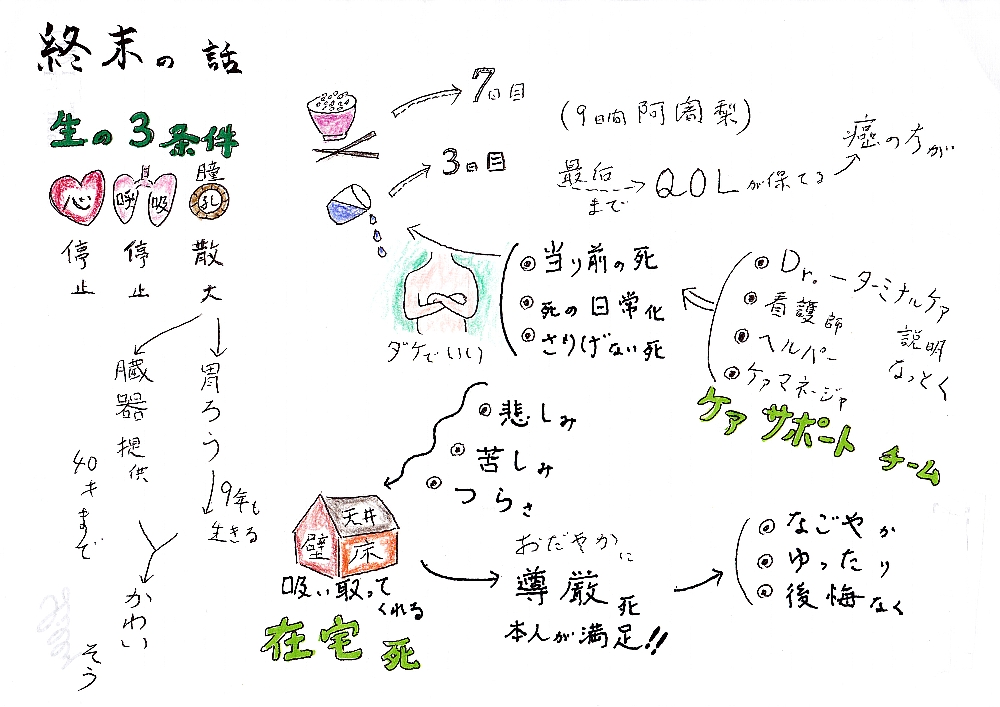 終末の話
生の3条件
心
呼 具 吸
瞳 孔
停止
停止
散大
臓器提供
40キまで
胃ろう
9年も
生きる
かわいそう
7日目
3日目
(9日間 阿闍梨)
最后まで
QOLが保てる
癌の方が
当り前の死
死の日常化
さりげない死
ダケでいい
Dr.ーターミナルケア
看護師
ヘルパー
ケアマネージャ
説明
なっとく
ケアサポートチーム
悲しみ
苦しみ
つらさ
天井
壁
床
吸い取って
くれる
在宅死
おだやかに
尊厳死
本人が満足!!
なごやか
ゆったり
後悔なく